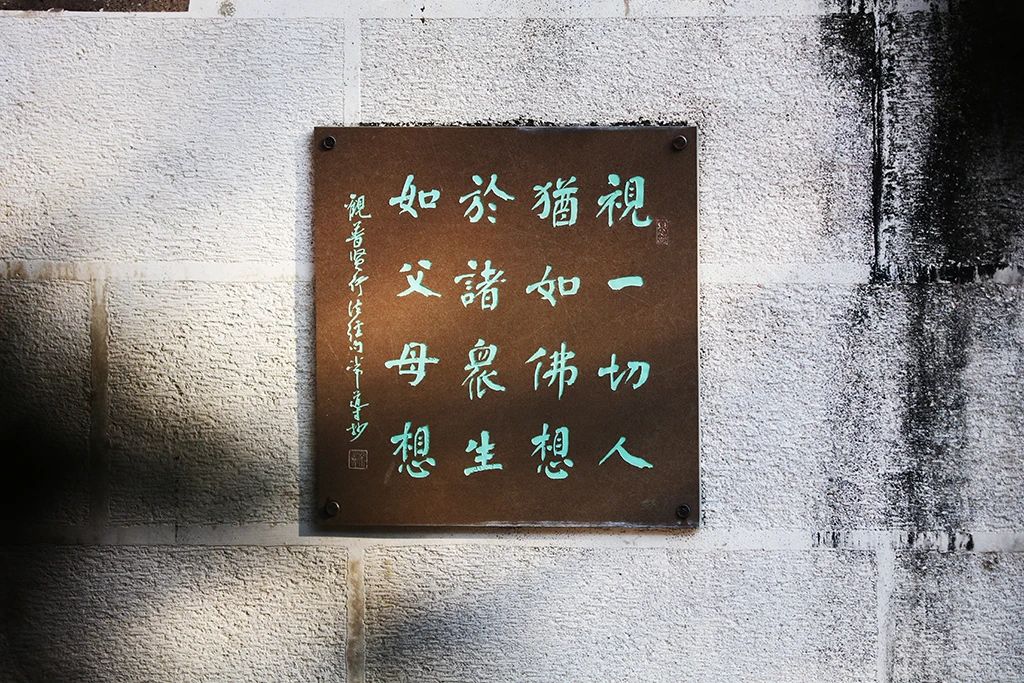 視一切人
猶如佛想
於諸衆生
如父母想
觀普賢行法經句 常導抄